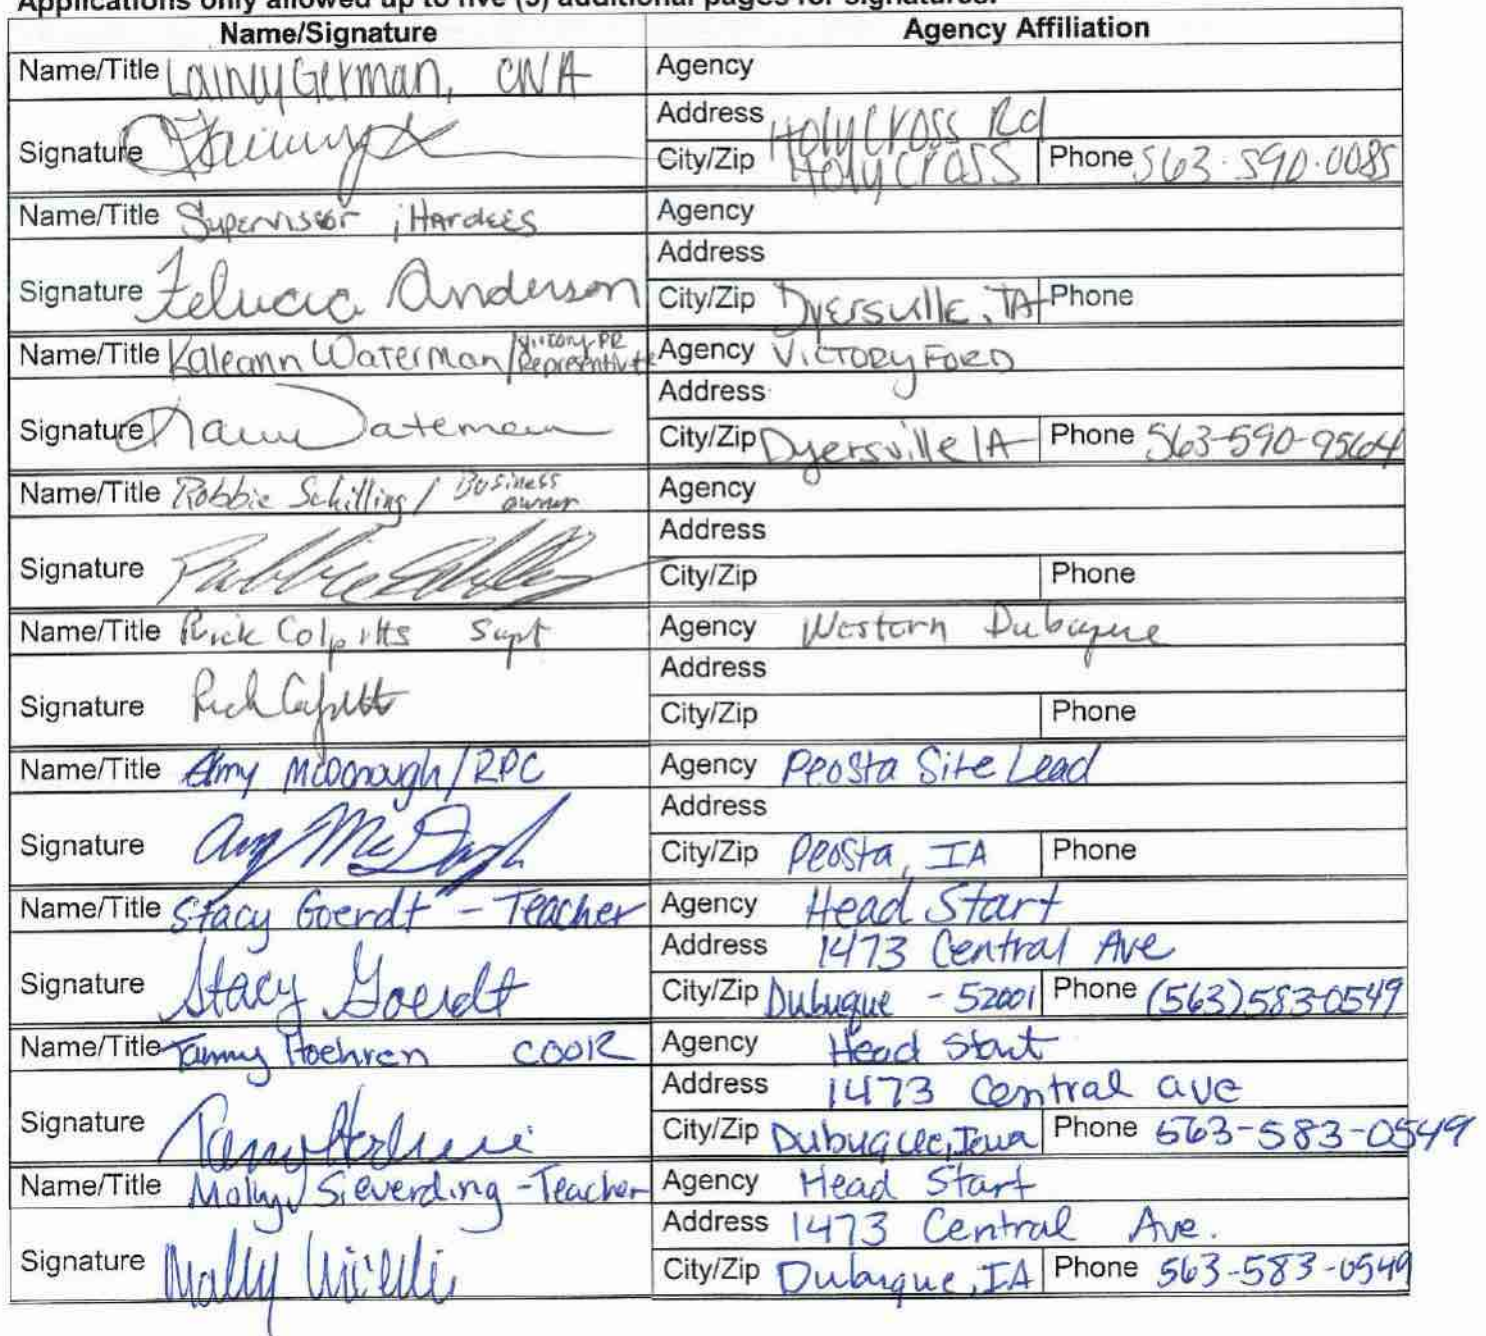 Applications only allowed up to five (5) additional pages for signatures.
Name/Signature Agency Affiliation
Name/Title Lainy German, CNA Agency
Signature Address Holy Cross Rd
City/Zip Holy Cross Phone 563.590.0085
Name/Title Supervisor; Hardees Agency
Signature Felucia Anderson Address
City/Zip Dyersville, IA Phone
Name/Title Kaleann Waterman/Victory PR Representitve Agency Victory Ford
Signature Address
City/Zip Dyersville IA Phone 563-590-9564
Name/Title Robbie Schilling / Business owner Agency
Signature Robbie Schilling Address
City/Zip Phone
Name/Title Rick Colpitts Supt Agency Western Dubuque
Signature Rick Colpitts Address
City/Zip Phone
Name/Title Amy McDonough/RPC Agency Peosta Site Lead
Signature Amy McDonough Address
City/Zip Peosta, IA Phone
Name/Title Stacy Goerdt - Teacher Agency Head Start
Signature Stacy Goerdt Address 1473 Central Ave
City/Zip Dubuque - 52001 Phone (563)583-0549
Name/Title Tammy Hoehren COOK Agency Head Start
Signature Address 1473 Central ave
City/Zip Dubuque, Iowa Phone 563-583-0549
Name/Title Molly Sieverding - Teacher Agency Head Start
Signature Molly Address 1473 Central Ave.
City/Zip Dubuque, IA Phone 563-583-0549